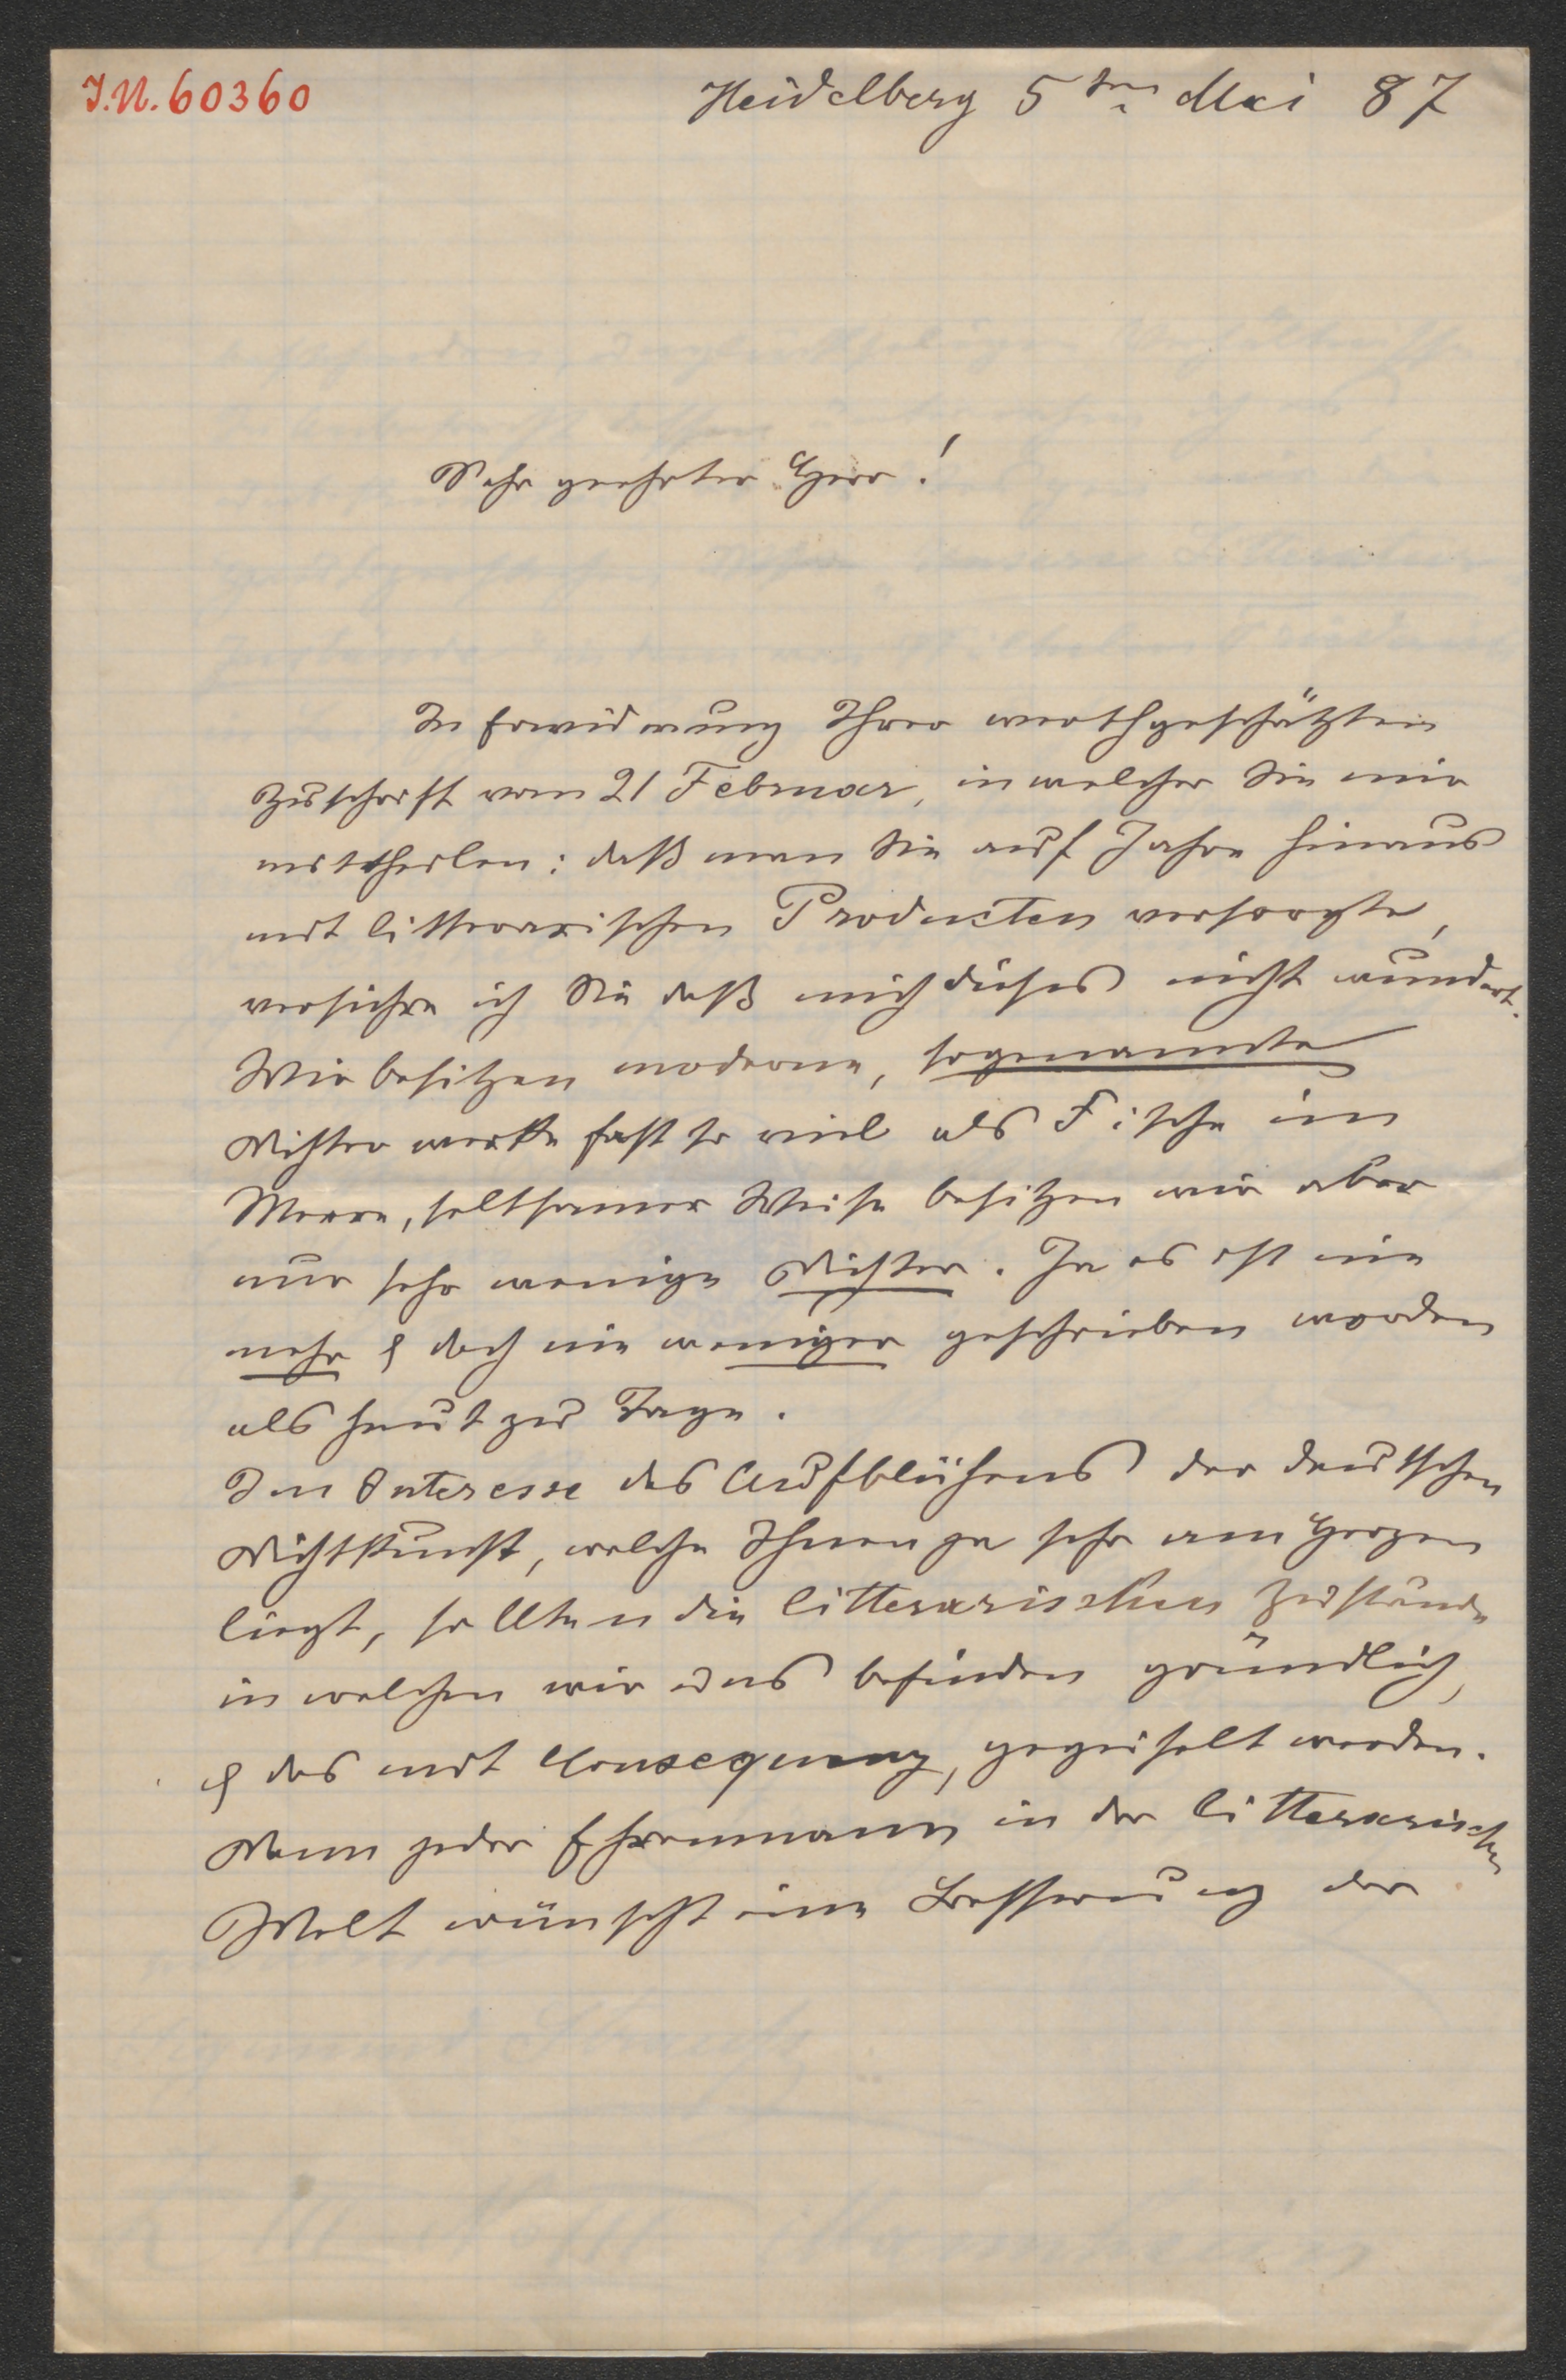 J.N. 60360
Heidelberg 5ten Mai 87
Sehr geehrter Herr!
In Erwiderung Ihrer werthgeschätzten
Zuschrift vom 21 Februar, in welcher Sie mir
mittheilen: daß man Sie auf Jahre hinaus
mit litterarischen Producten versorgte,
versichre ich Sie daß mich dieses nicht wundert.
Wir besitzen moderne, sogenannte
Dichterwerke fast so viel als Fische im
Meere, seltsamer Weise besitzen wir aber
nur sehr wenige Dichter. Ja es ist nie
mehr & doch nie weniger geschrieben worden
als heut zu Tage.
Im Interesse des Aufblühens der deutschen
Dichtkunst, welche Ihnen ja sehr am Herzen
liegt, sollten die litterarischen Zustände
in welchen wir uns befinden gründlich,
& das mit Consequenz, gegeiselt werden.
Denn jeder Ehrenmann in der litterarischen
Welt wünscht eine Besserung der